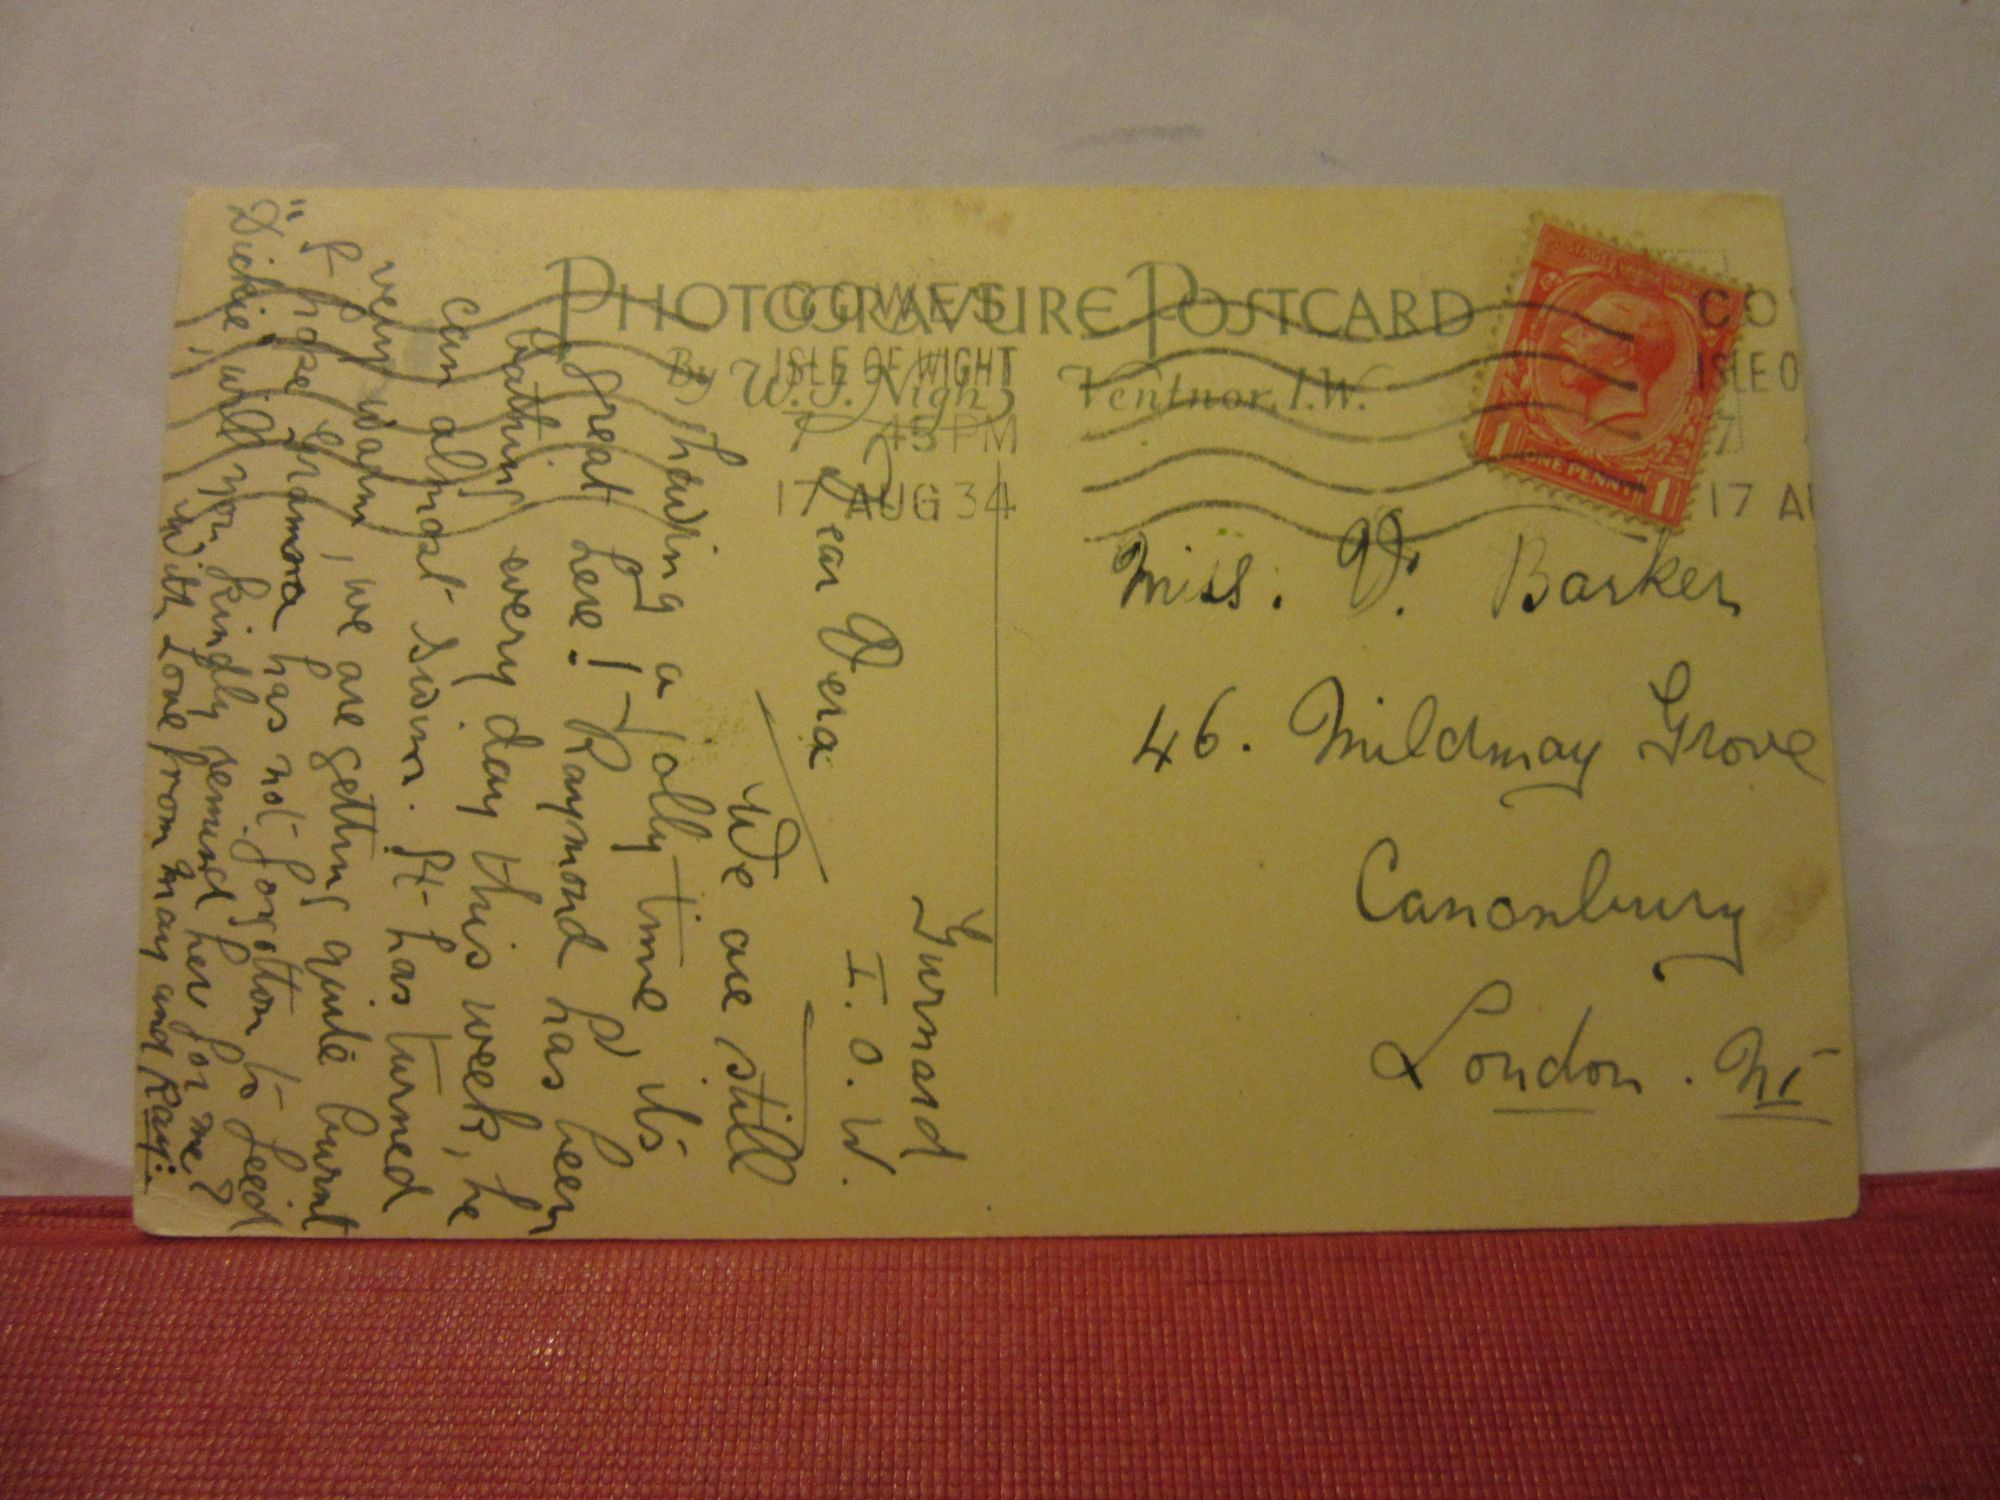 PHOTOGRAVURE POSTCARD
By W.J. Nigh, Ventnor, I.W.
COWES
ISLE OF WIGHT
7 45 PM
17 AUG 34
CO
ISLE O
7
17 AU
ONE PENNY
1 1
Miss. V. Barker
46. Mildmay Grove
Canonbury
London. N1
Gurnard
I.O.W.
Dear Vera
We are still
having a jolly time it's
great here! Raymond has been
bathing every day this week, he
can almost swim. It has turned
very warm, we are getting quite burnt
I hope Gramma has not forgotton to feed
"Dickie", will you kindly remind her for me?
With Love from May and Ray.